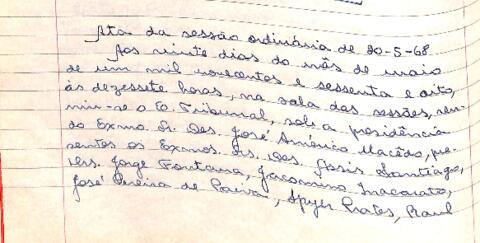 Ata da sessão ordinária de 20-5-68.
Aos vinte dias do mês de maio
de um mil novecentos e sessenta e oito,
às dezessete horas, na sala das sessões, reu-
niu-se o E. Tribunal, sob a presidência
do Exmo. Sr. Des. José Américo Macêdo, pre-
sentes os Exmos. Srs. Des. Assis Santiago,
Drs. Jorge Fontana, Jacomino Inacarato,
José Pereira de Paiva, Spyer Prates, Raul